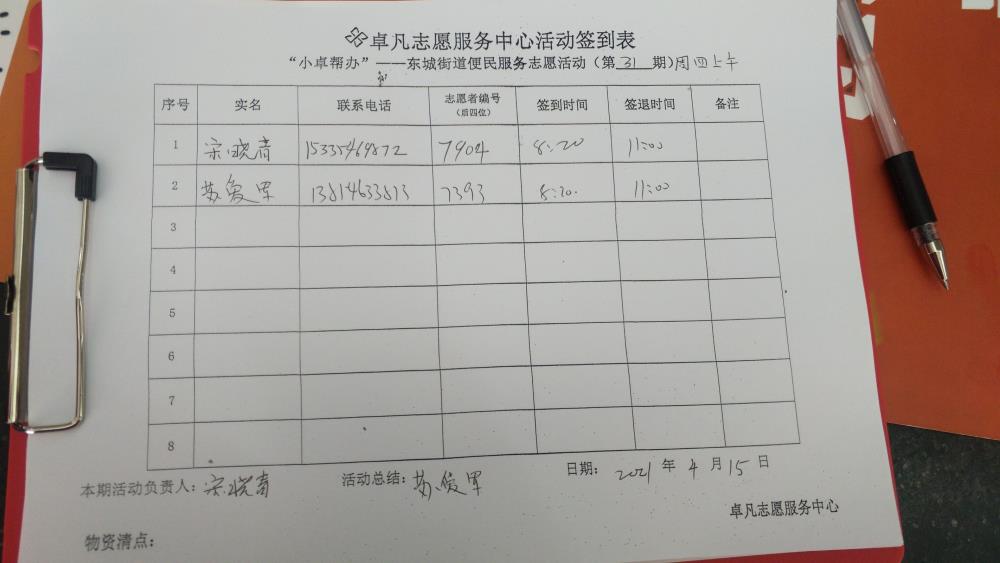 卓凡志愿服务中心活动签到表
“小卓帮办”——东城街道便民服务志愿活动（第31期）周四上午
序号 实名 联系电话 志愿者编号（后四位） 签到时间 签退时间 备注
1 宋晓青 15335469872 7904 8:20 11:00
2 苏爱军 13814633813 7393 8:20. 11:00
3
4
5
6
7
8
本期活动负责人：宋晓青 活动总结：苏爱军 日期：2021年4月15日
卓凡志愿服务中心
物资清点：